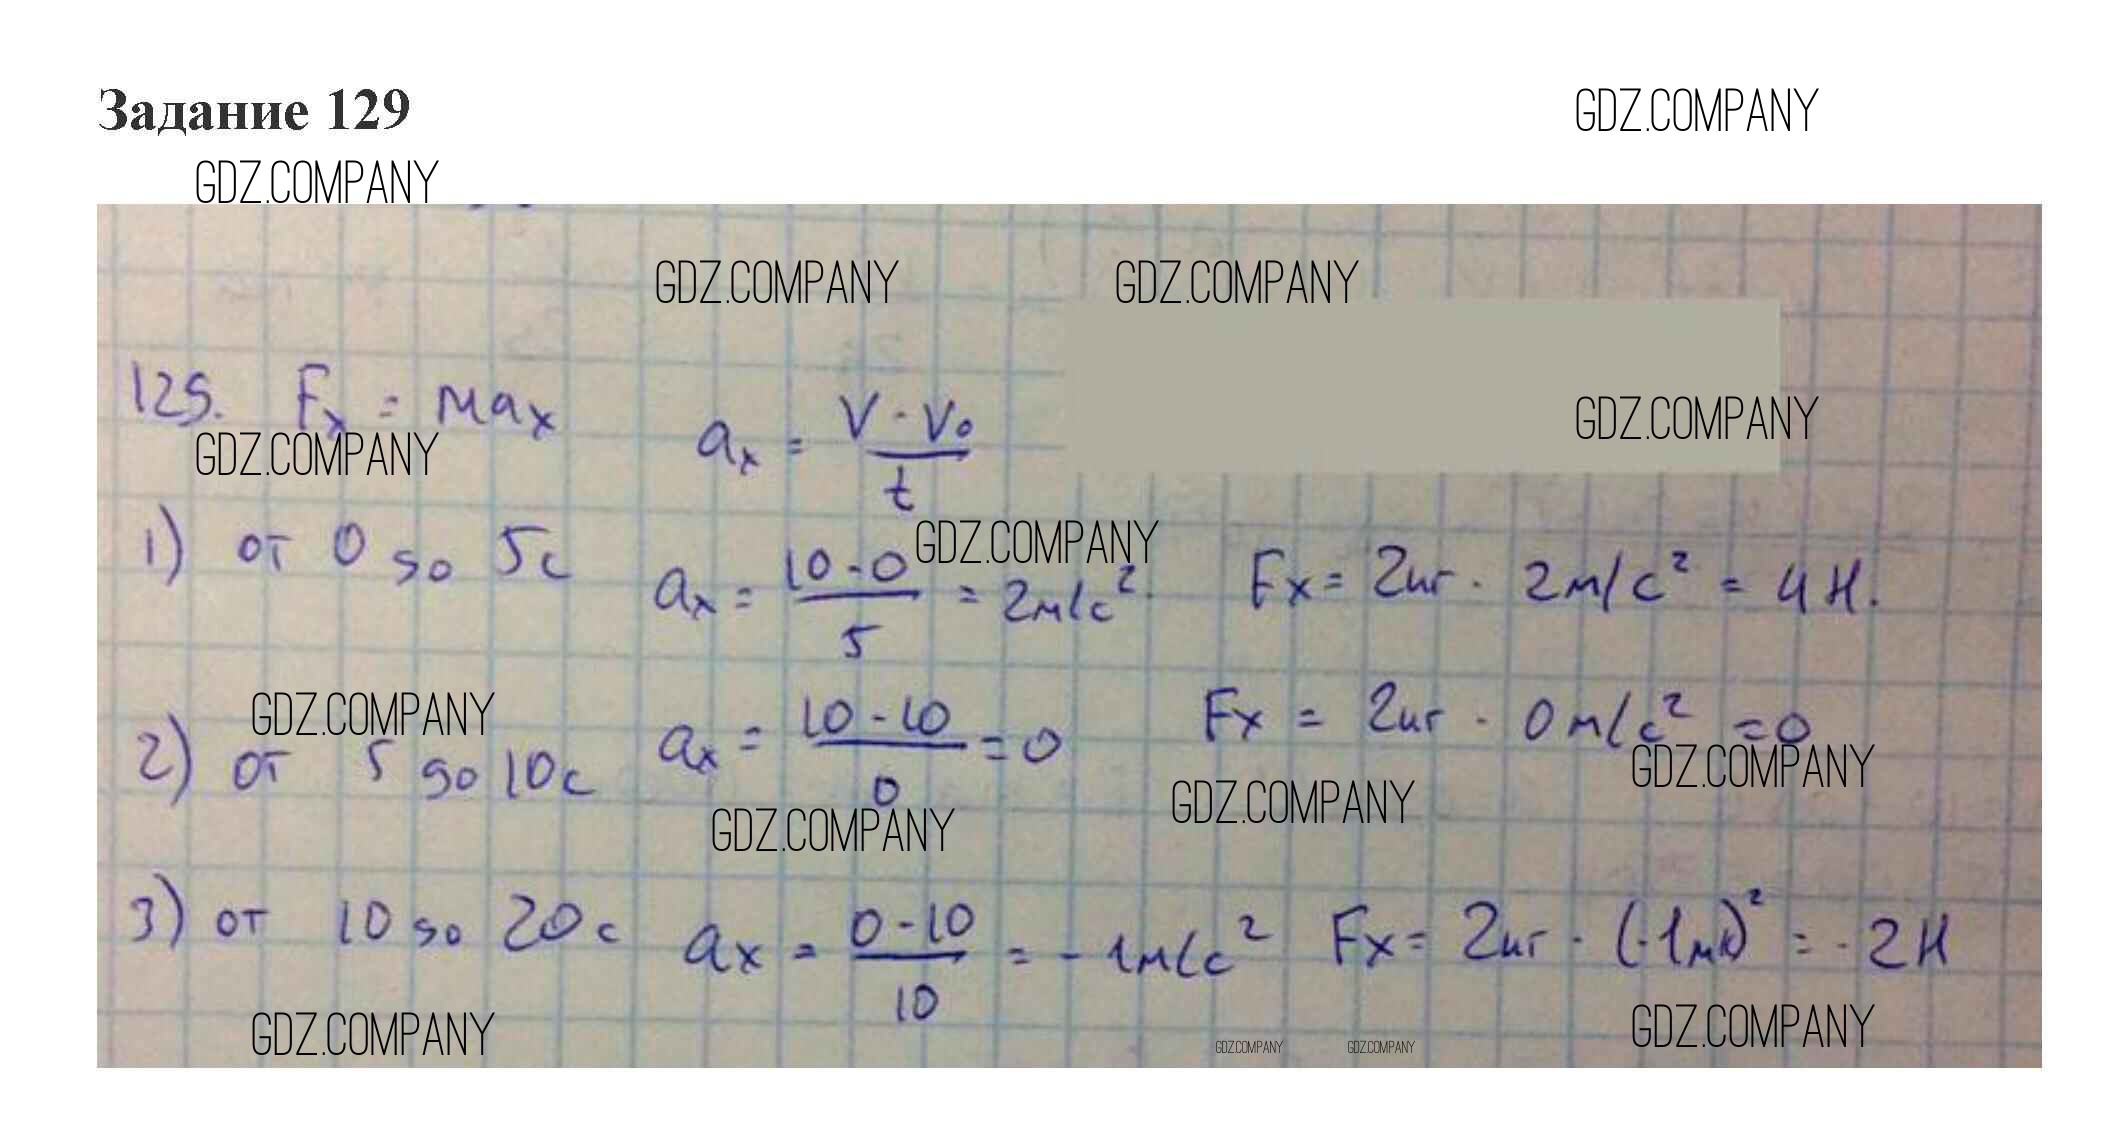 Задание 129
GDZ.COMPANY
GDZ.COMPANY
GDZ.COMPANY GDZ.COMPANY
129. Fx = max
ax = V - V₀ / t
GDZ.COMPANY
GDZ.COMPANY
1) от 0 до 5с ax = 10 - 0 / 5 = 2м/с² Fx = 2кг · 2м/с² = 4Н.
GDZ.COMPANY
GDZ.COMPANY
2) от 5 до 10с ax = 10 - 10 / 0 = 0 Fx = 2кг · 0м/с² = 0
GDZ.COMPANY
GDZ.COMPANY GDZ.COMPANY
3) от 10 до 20с ax = 0 - 10 / 10 = - 1м/с² Fx = 2кг · (-1м/с)² = - 2Н
GDZ.COMPANY GDZ.COMPANY GDZ.COMPANY GDZ.COMPANY